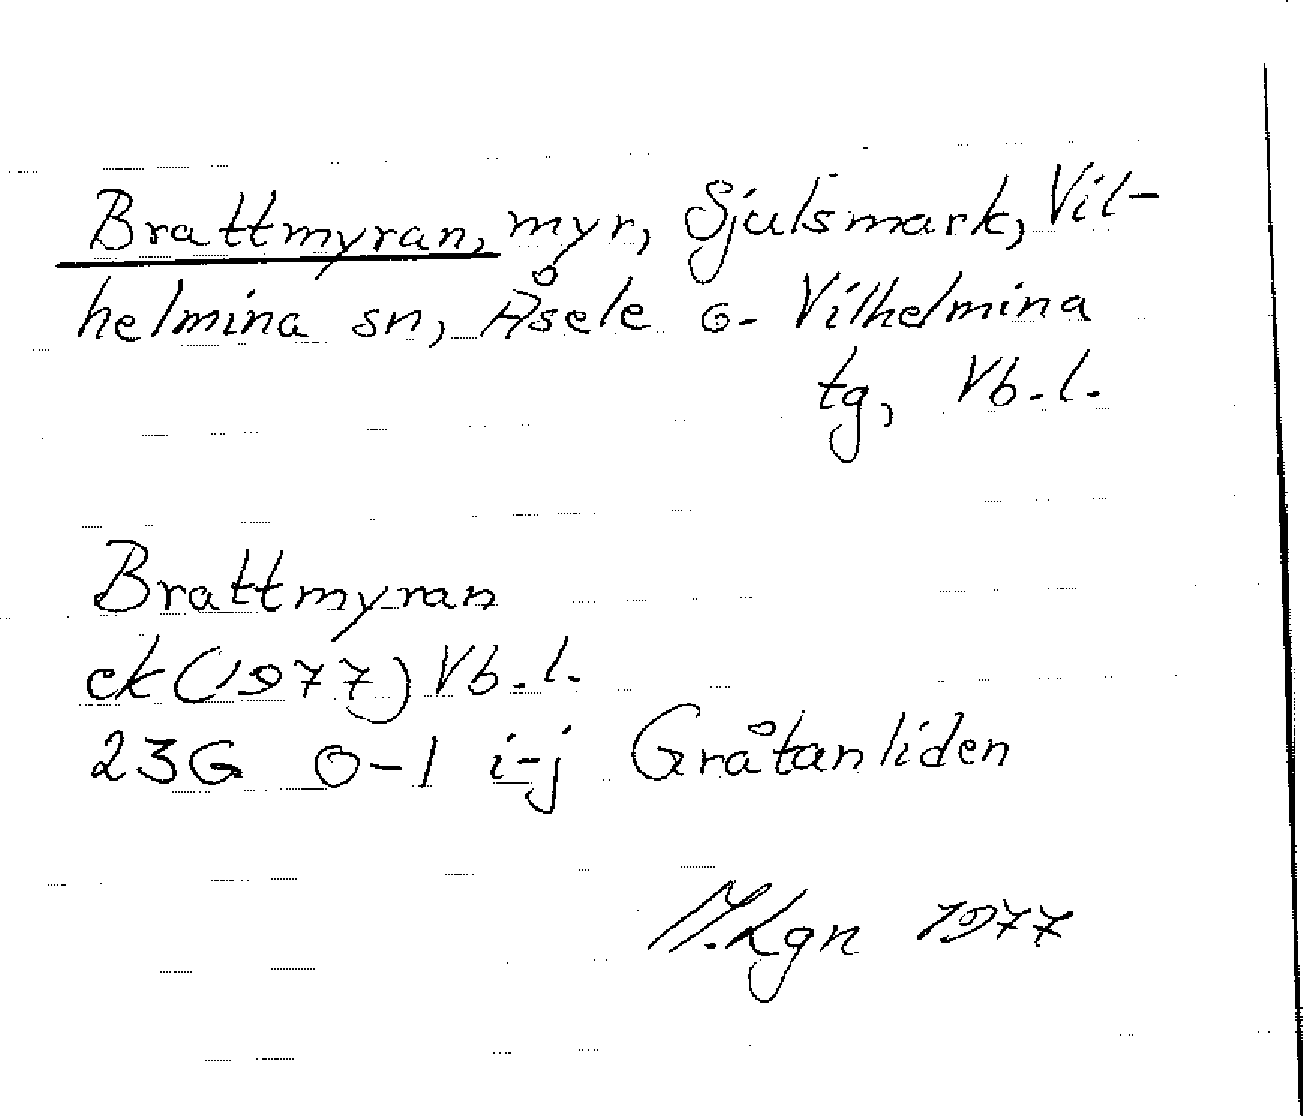 Brattmyran, myr, Sjulsmark, Vil-
helmina sn, Åsele o. Vilhelmina
tg, Vb.l.
Brattmyran
ek (1977) Vb.l.
23G 0-1 i-j Gråtanliden
M.Lgn 1977